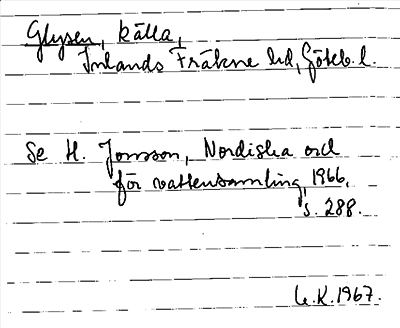 Glysen, källa,
Inlands Fräkne hd, Göteb. l.
Se H. Jonsson, Nordiska ord
för vattensamling, 1966,
s. 288.
L.K. 1967.